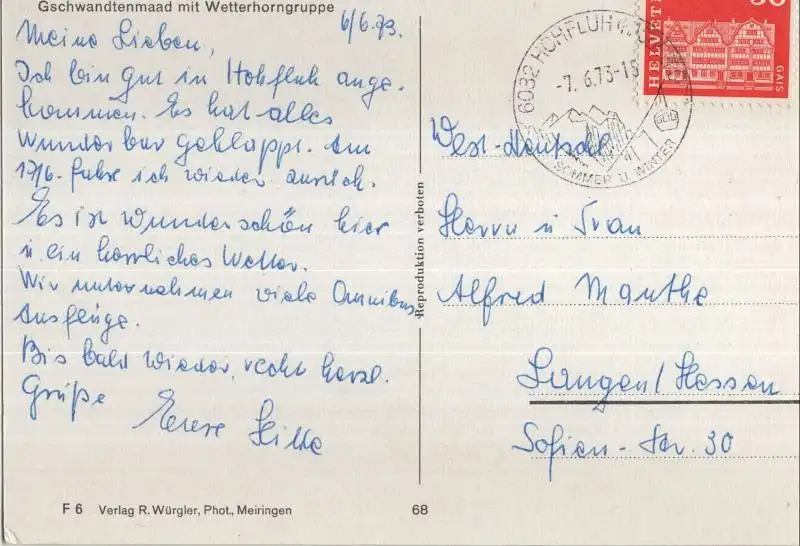 Gschwandtenmaad mit Wetterhorngruppe
6/6.73.
Meine Lieben,
Ich bin gut in Hohfluh ange-
kommen. Es hat alles
wunderbar geklappt. Am
17/6. fahre ich wieder zurück.
Es ist wunderschön hier
u ein herrliches Wetter.
Wir unternehmen viele Omnibus
Ausflüge.
Bis bald wieder, recht herzl.
Grüße
Eure Hilde
F 6 Verlag R. Würgler, Phot., Meiringen
68
Reproduktion verboten
HELVETIA
GAIS
6032 HOHFLUH
-7. 6.73-15
SOMMER U. WINTER
West-Deutschl
Herrn u Frau
Alfred Manthe
Langen/Hessen
Sofien-Str. 30